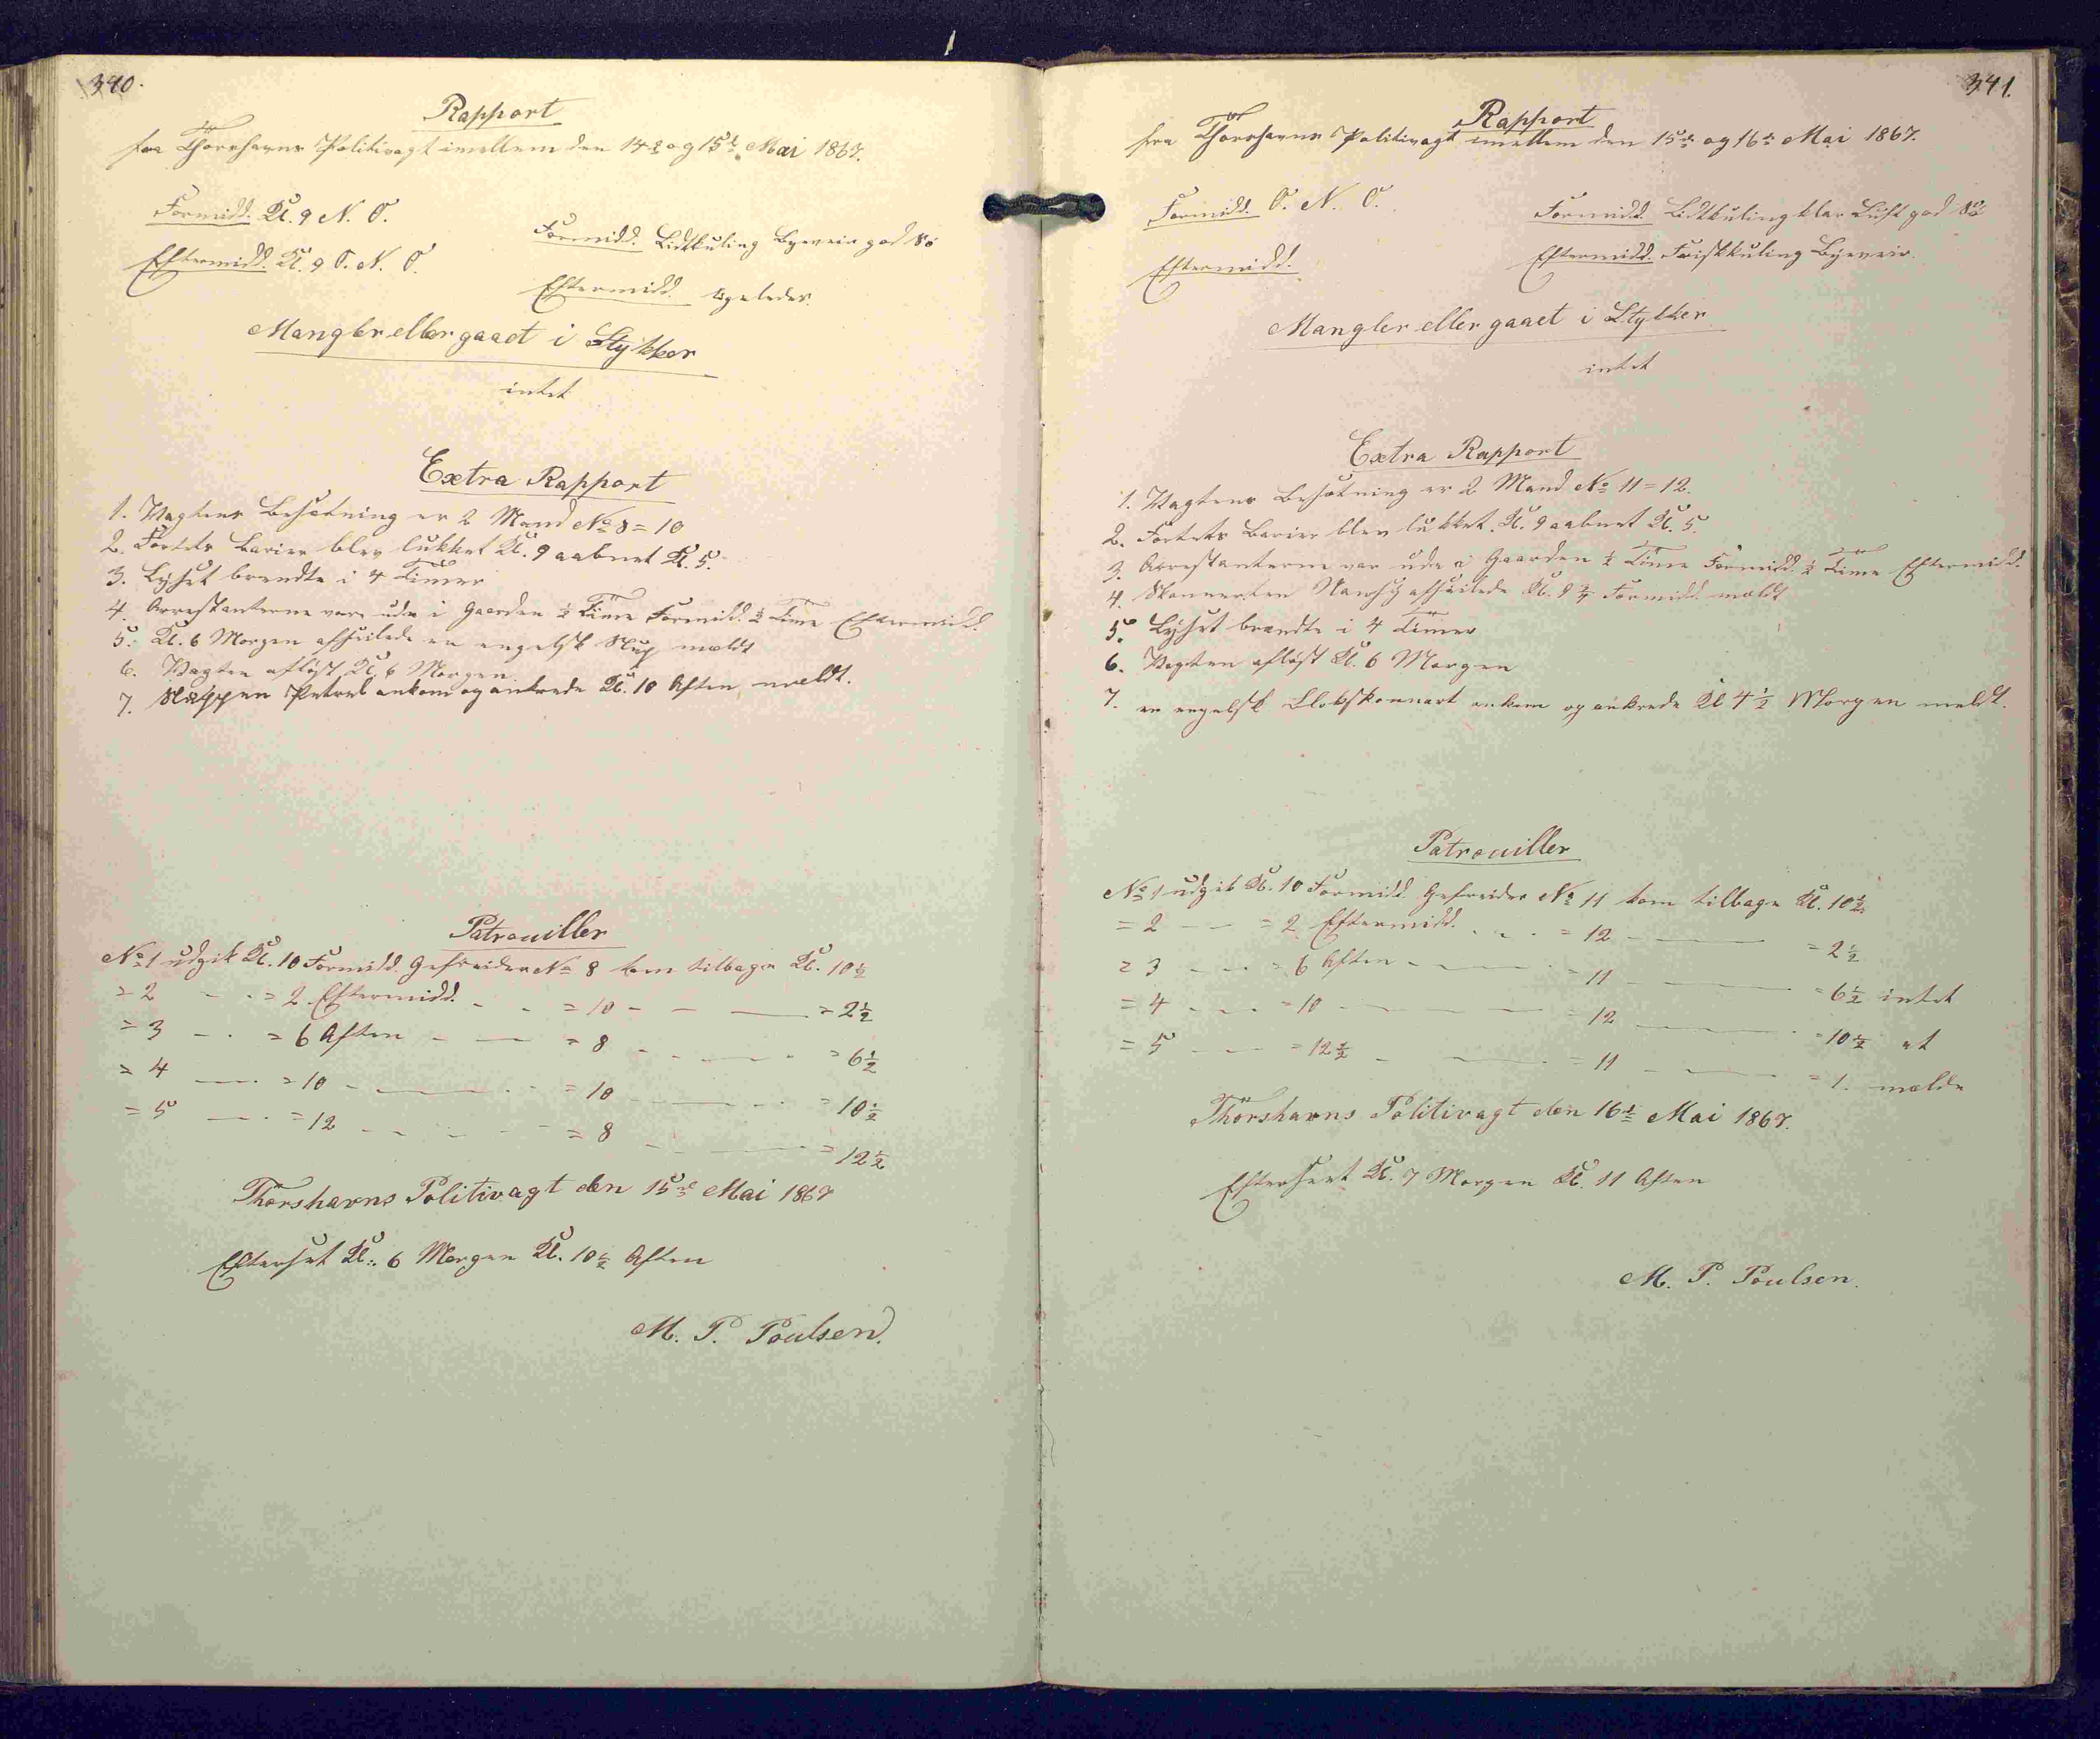 340.
Rapport
fra Thorshavns Politivagt imellem den 14de og 15de Mai 1867.
Formidd. Kl. 9 N. O.
Formidd. Lidtkuling Byeveir god Sö
Eftermidd. Kl. 9 O. N. O.
Eftermidd. ligeledes.
Mangler eller gaaet i Stykker
intet
Extra Rapport
1. Vagtens Besætning er 2 Mand No 8 = 10
2. Fortets Barier blev lukket Kl. 9 aabnet Kl. 5.
3. Lyset brendte i 4 Timer
4. Arrestanterne vare ude i Gaarden ½ Time Formidd. ½ Time Eftermidd.
5. Kl. 6 Morgen afseilede en engelsk Slup meldt
6. Vagten aflöst Kl. 6 Morgen.
7. Sluppen Petrel ankom og ankrede Kl. 10 Aften meldt.
Patrouiller
No 1 udgik Kl. 10 Formidd. Gefreider No 8 kom tilbage Kl. 10½
= 2 - - = 2 Eftermidd. - - = 10 - - — = 2½
= 3 - - = 6 Aften - — = 8 - - — - = 6½
= 4 — - = 10 - — - - = 10 - — - = 10½
= 5 — - = 12 - - - - = 8 - - — = 12½
Thorshavns Politivagt den 15de Mai 1867
Efterset Kl. 6 Morgen Kl. 10½ Aften
M. P. Poulsen.
341.
Rapport
fra Thorshavns Politivagt imellem den 15de og 16de Mai 1867.
Formidd. O. N. O.
Formidd. Lidtkuling klar Luft god Sö
Eftermidd.
Eftermidd. Friskkuling Byeveir.
Mangler eller gaaet i Stykker
intet
Extra Rapport
1. Vagtens Besætning er 2 Mand No 11 = 12.
2. Fortets Barier blev lukket Kl. 9 aabnet Kl. 5.
3. Arrestanterne var ude i Gaarden ½ Time Formidd. ½ Time Eftermidd.
4. Skonnerten afseilede Kl. Formidd. meldt
5. Lyset brændte i 4 Timer
6. Vagten aflöst Kl. 6 Morgen
7. en engelsk ankom og ankrede Kl 4½ Morgen meldt.
Patrouiller
No 1 udgik Kl. 10 Formidd. Gefreider No 11 kom tilbage Kl. 10½
= 2 - — = 2 Eftermidd. - - = 12 - — = 2½
= 3 - - = 6 Aften - — - = 11 - — = 6½ intet
= 4 - - - = 10 - — - — = 12 — - = 10½ at
= 5 - — = 12½ - — - = 11 - — = 1. melde
Thorshavns Politivagt den 16de Mai 1867.
Efterseet Kl. 7 Morgen Kl. 11 Aften
M. P. Poulsen.